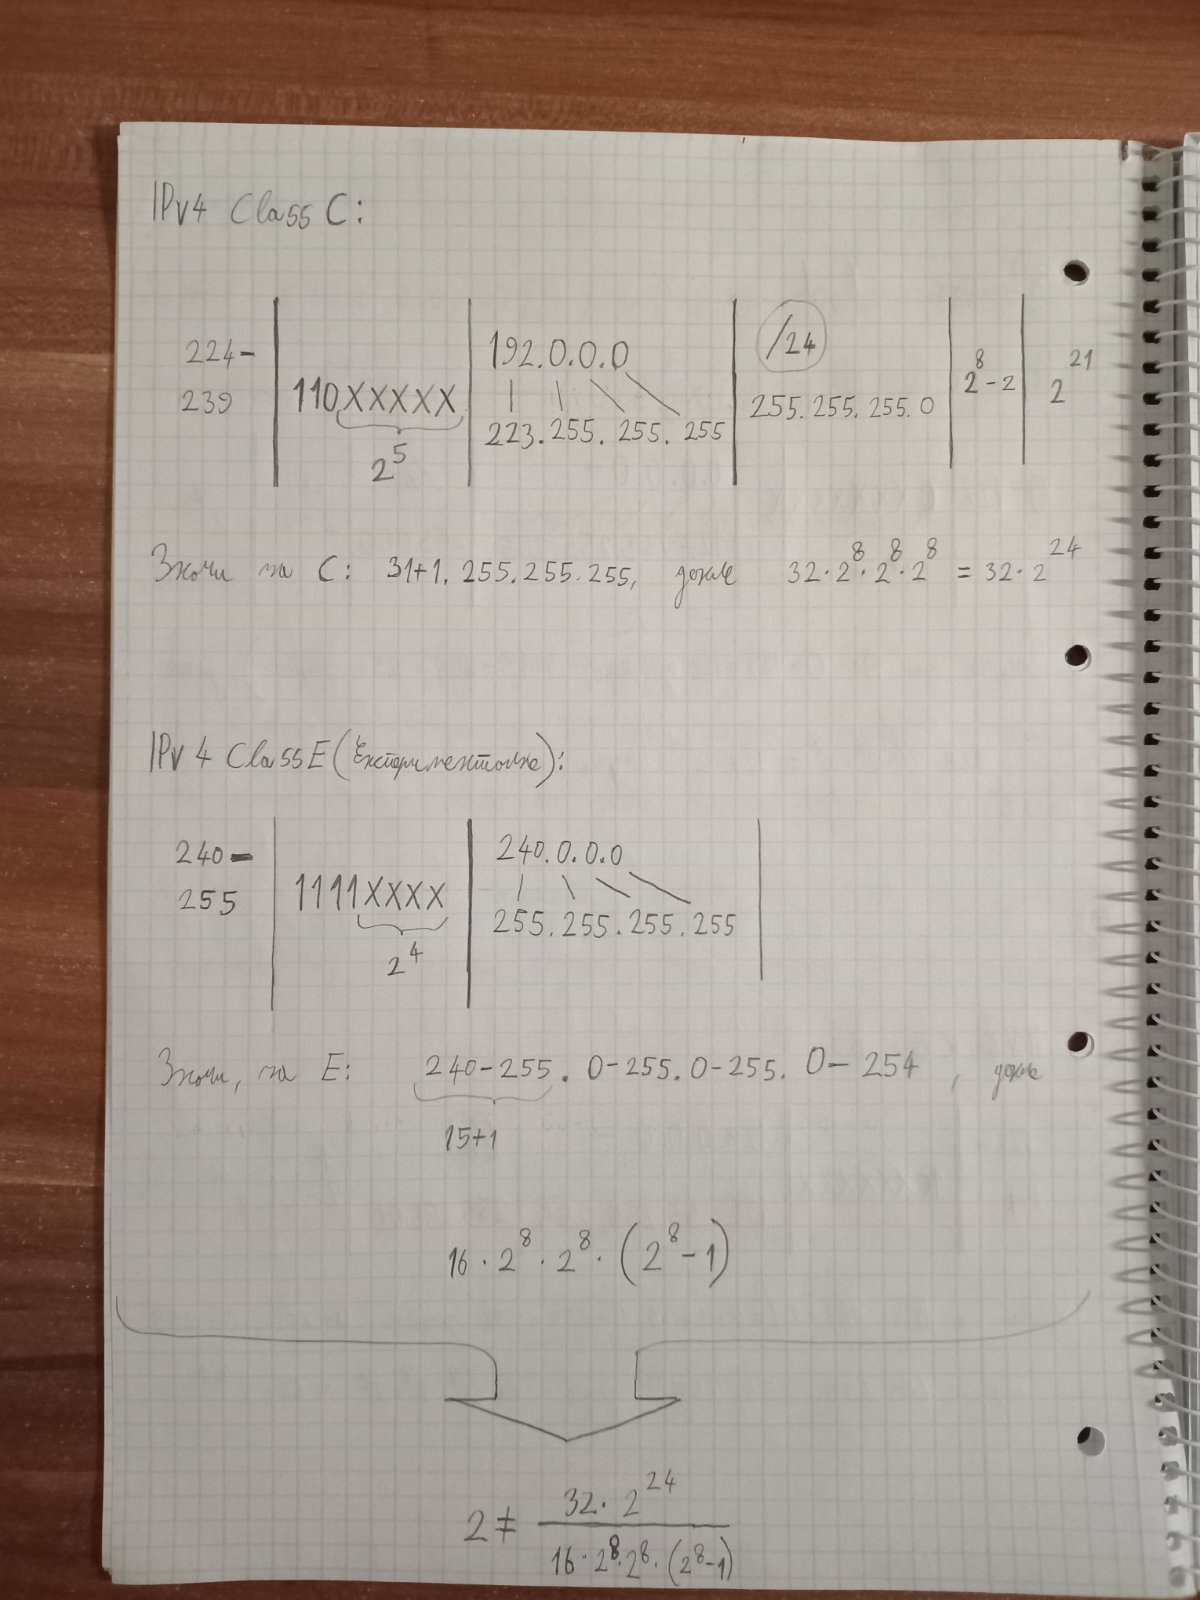 IPv4 Class C:
224-239 | 110XXXXX | 192.0.0.0 | /24 | 2^8-2 | 2^21
2^5 | 223.255.255.255 | 255.255.255.0
Значи за C: 31+1.255.255.255, 32·2^8·2^8·2^8 = 32·2^24
IPv4 Class E (Експериментална):
240-255 | 1111XXXX | 240.0.0.0 |
2^4 | 255.255.255.255
Значи, за E: 240-255.0-255.0-255.0-254,
15+1
16·2^8·2^8·(2^8-1)
2 ≠ 32·2^24 / 16·2^8·2^8·(2^8-1)